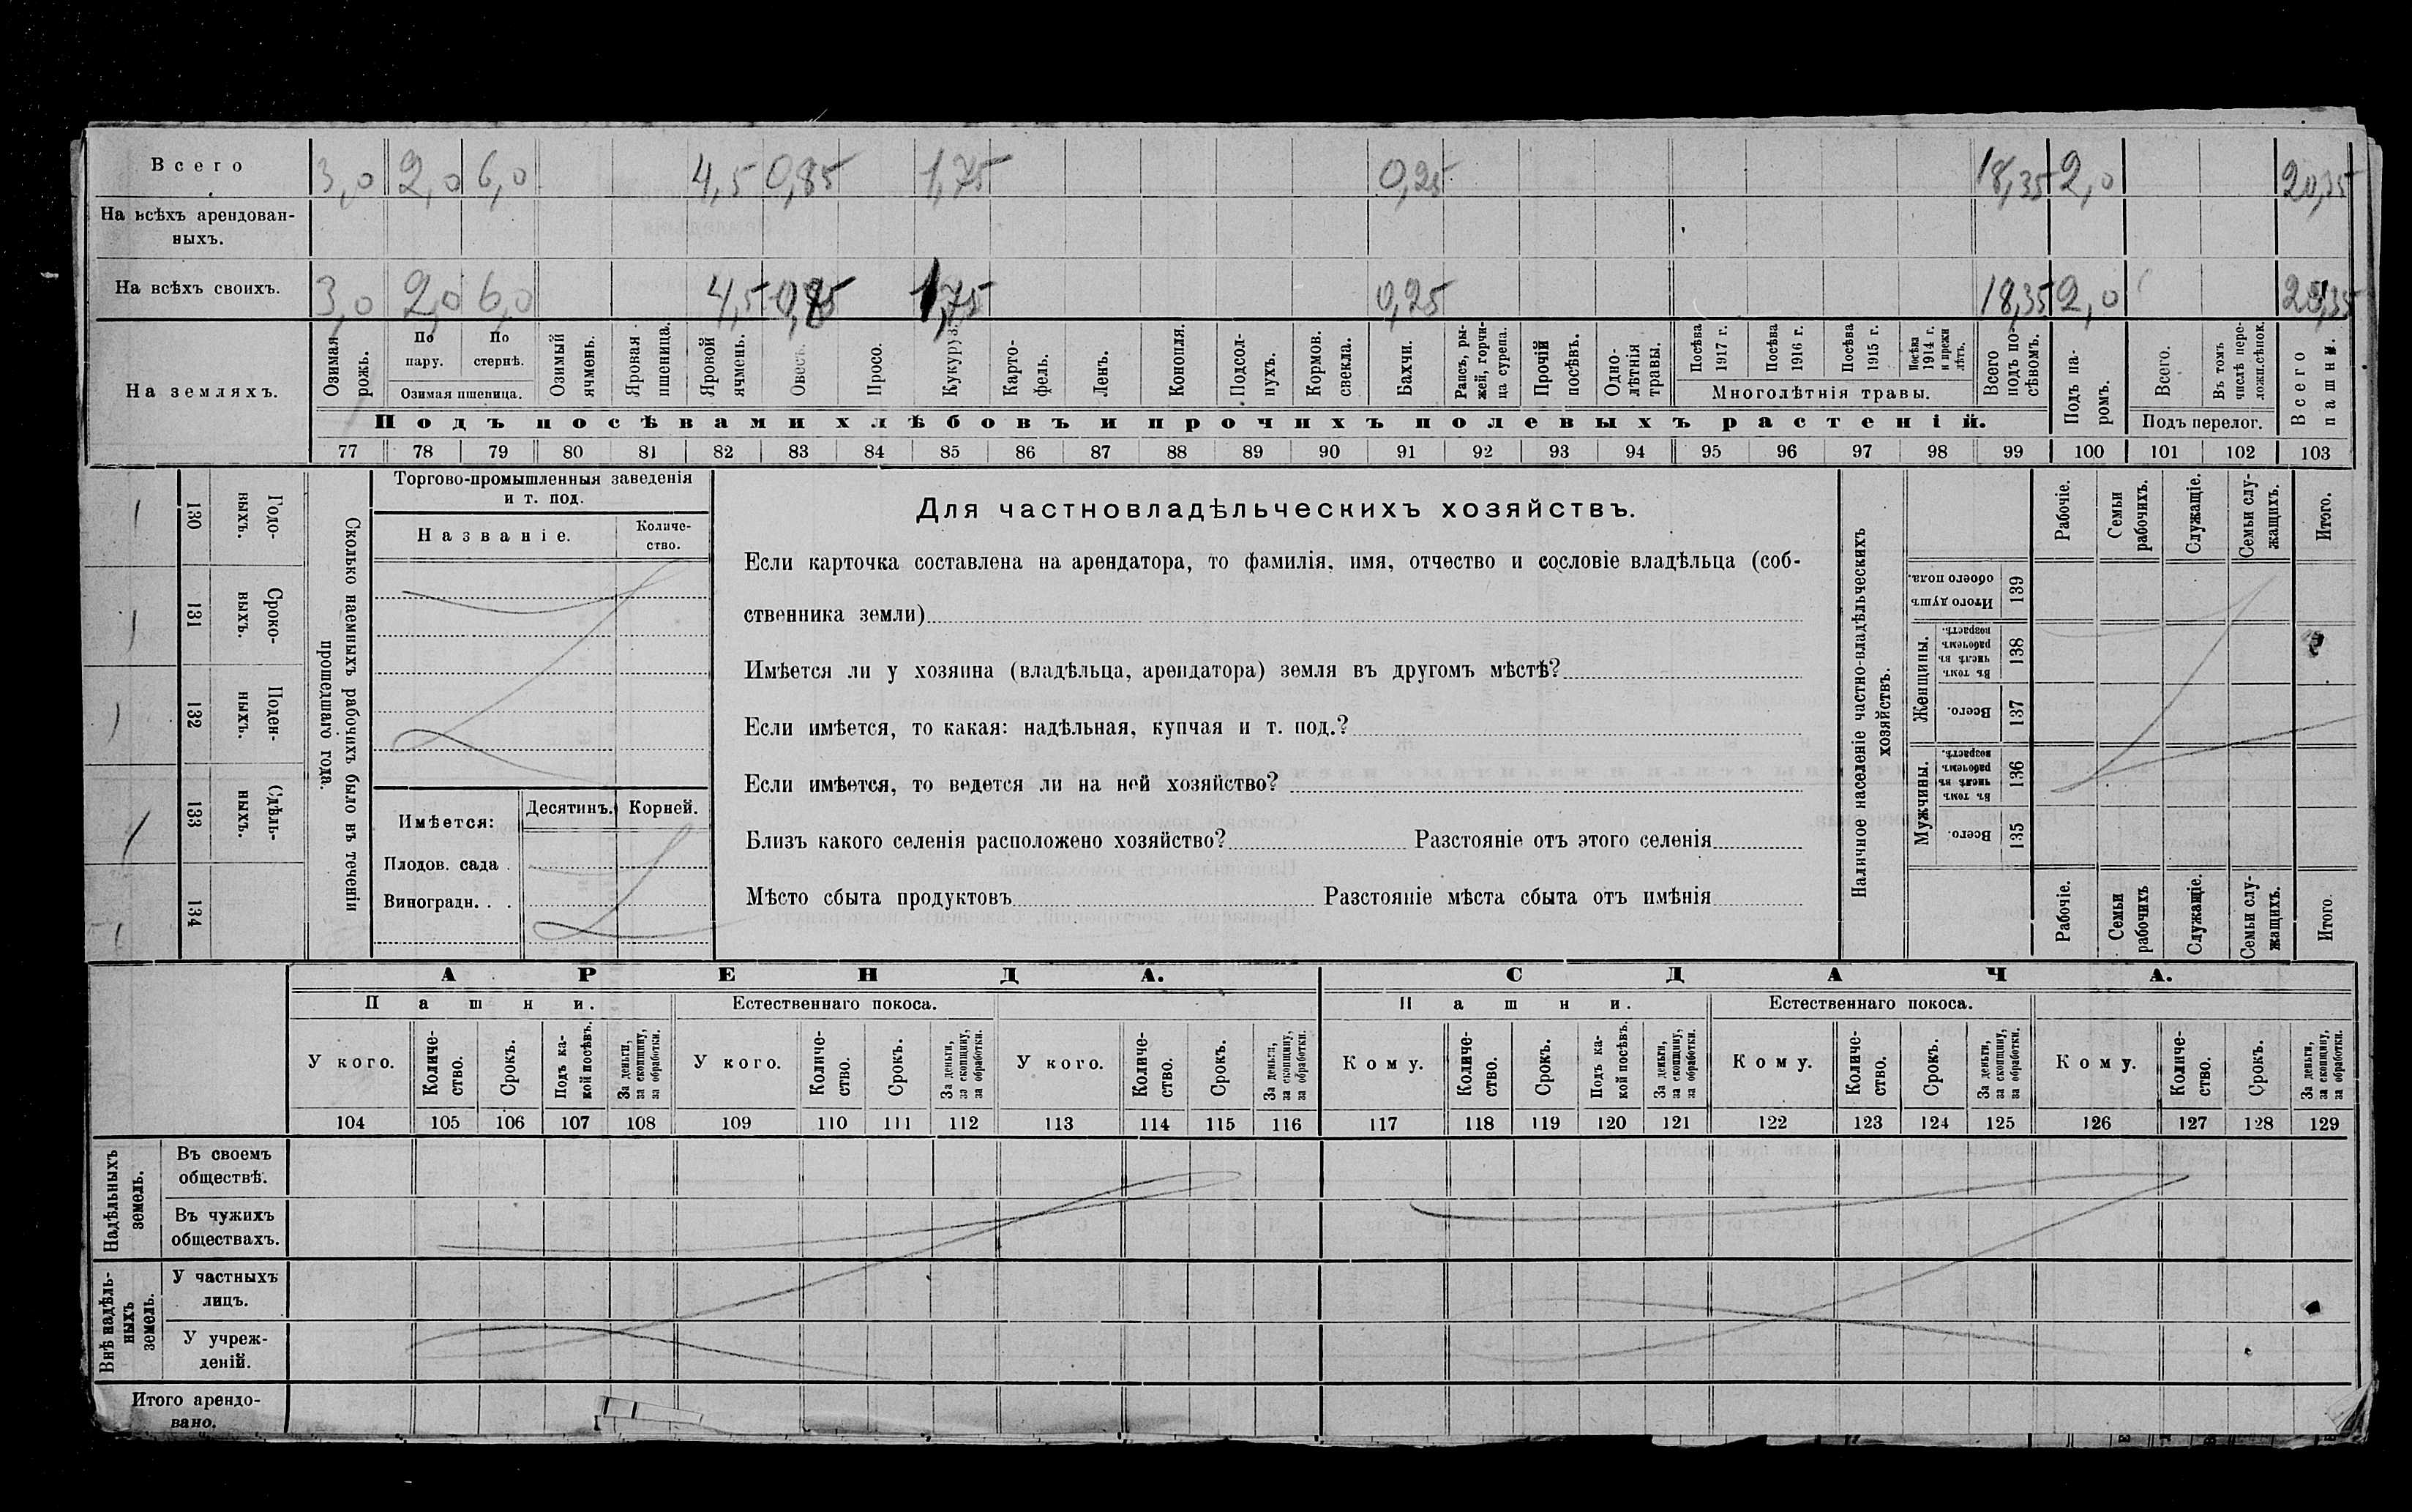 Всего 3,0 2,0 6,0 4,5 0,85 1,75 0,25 18,35 2,0 20,35
На всѣхъ арендован-
ныхъ.
На всѣхъ своихъ. 3,0 2,0 6,0 4,5 0,85 1,75 0,25 18,35 2,0
На земляхъ.
Озимая рожь.
По пару.
По стернѣ.
Озимая пшеница.
Озимый ячмень.
Яровая пшеница.
Яровой ячмень.
Овесъ.
Просо.
Кукуруз.
Карто-
фель.
Ленъ.
Конопля.
Подсол-
нухъ.
Кормов. свекла.
Бахчи.
Рапсъ, ры-
жей, горчи-
ца сурепа.
Прочій посѣвъ.
Одно-
лѣтнія травы.
Посѣва 1917 г.
Посѣва 1916 г.
Посѣва 1915 г.
Посѣва 1914 г. и прежн лѣтъ.
Многолѣтнія травы.
Всего подъ по-
сѣвомъ.
Подъ па-
ромъ.
Всего.
Въ томъ числѣ пере-
ложн.сѣнок.
Подъ перелог.
Всего пашни.
Подъ посѣвами хлѣбовъ и прочихъ полевыхъ растеній.
77 78 79 80 81 82 83 84 85 86 87 88 89 90 91 92 93 94 95 96 97 98 99 100 101 102 103
Сколько наемныхъ рабочихъ было въ теченіи
прошедшаго года.
Годо-
выхъ.
130
Сроко-
выхъ.
131
Поден-
ныхъ.
132
Сдѣль-
ныхъ.
133
134
Торгово-промышленныя заведенія
и т. под.
Названіе.
Количе-
ство.
Имѣется:
Десятинъ. Корней.
Плодов. сада .
Виноградн. . .
Для частновладѣльческихъ хозяйствъ.
Если карточка составлена на арендатора, то фамилія, имя, отчество и сословіе владѣльца (соб-
ственника земли)
Имѣется ли у хозяина (владѣльца, арендатора) земля въ другомъ мѣстѣ?
Если имѣется, то какая: надѣльная, купчая и т. под.?
Если имѣется, то ведется ли на ней хозяйство?
Близъ какого селенія расположено хозяйство? Разстояніе отъ этого селенія
Мѣсто сбыта продуктовъ Разстояніе мѣста сбыта отъ имѣнія
Наличное населеніе частно-владѣльческихъ
хозяйствъ.
Рабочіе.
Семьи рабочихъ.
Служащіе.
Семьи слу-
жащихъ.
Итого.
Итого душъ обоего пола.
139
Женщины.
Въ томъ числѣ въ рабочемъ возрастѣ.
138
Всего.
137
Мужчины.
Въ томъ числѣ въ рабочемъ возрастѣ.
136
Всего.
135
Рабочіе.
Семьи рабочихъ
Служащіе.
Семьи слу-
жащихъ.
Итого.
АРЕНДА. СДАЧА.
Пашни. Естественнаго покоса. Пашни. Естественнаго покоса.
У кого.
Количе-
ство.
Срокъ.
Подъ ка-
кой посѣвъ.
За деньги, за скопщину, за обработки.
У кого.
Количе-
ство.
Срокъ.
За деньги, за скопщину, за обработки.
У кого.
Количе-
ство.
Срокъ.
За деньги, за скопщину, за обработки.
Кому.
Количе-
ство.
Срокъ.
Подъ ка-
кой посѣвъ.
За деньги, за скопщину, за обработки.
Кому.
Количе-
ство.
Срокъ.
За деньги, за скопщину, за обработки.
Кому.
Количе-
ство.
Срокъ.
За деньги, за скопщину, за обработки.
104 105 106 107 108 109 110 111 112 113 114 115 116 117 118 119 120 121 122 123 124 125 126 127 128 129
Надѣльныхъ земель.
Въ своемъ
обществѣ.
Въ чужихъ
обществахъ.
Внѣ надѣль-
ныхъ земель.
У частныхъ
лицъ.
У учреж-
деній.
Итого арендо-
вано.